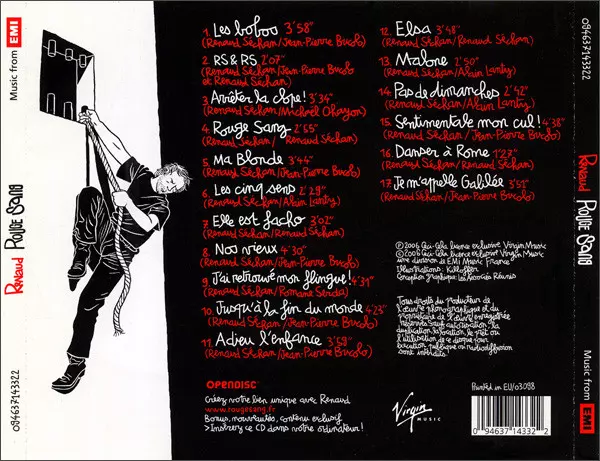 Music from EMI
Renaud Rouge Sang
094637143322
1. Les bobos 3'58"
(Renaud Séchan/Jean-Pierre Bucolo)
2. RS & RS 2'07"
(Renaud Séchan/Jean-Pierre Bucolo
et Renaud Séchan)
3. Arrêter la clope! 3'34"
(Renaud Séchan/Michaël Ohayon)
4. Rouge Sang 2'55"
(Renaud Séchan/Renaud Séchan)
5. Ma Blonde 3'44"
(Renaud Séchan/Jean-Pierre Bucolo)
6. Les cinq sens 2'29"
(Renaud Séchan/Alain Lanty)
7. Elle est facho 3'02"
(Renaud Séchan/Renaud Séchan)
8. Nos vieux 4'30"
(Renaud Séchan/Jean-Pierre Bucolo)
9. J'ai retrouvé mon flingue! 4'31"
(Renaud Séchan/Romane Serda)
10. Jusqu'à la fin du monde 4'23"
(Renaud Séchan/Jean-Pierre Bucolo)
11. Adieu l'enfance 3'59"
(Renaud Séchan/Jean-Pierre Bucolo)
OPENDISC
Créez votre lien unique avec Renaud
www.rougesang.fr
Bonus, nouveautés, contenu exclusif
> Insérez ce CD dans votre ordinateur!
12. Elsa 3'48"
(Renaud Séchan/Renaud Séchan)
13. Malone 2'50"
(Renaud Séchan/Alain Lanty)
14. Pas de dimanches 2'42"
(Renaud Séchan/Alain Lanty)
15. Sentimentale mon cul! 4'38"
(Renaud Séchan/Jean-Pierre Bucolo)
16. Danser à Rome 1'27"
(Renaud Séchan/Renaud Séchan)
17. Je m'appelle Galilée 3'51"
(Renaud Séchan/Jean-Pierre Bucolo)
℗ 2006 Ceci-Cela licence exclusive Virgin Music
© 2006 Ceci-Cela licence exclusive Virgin Music
une division de EMI Music France
Illustrations: Killoffer
Conception Graphique: Les Associés Réunis
Tous droits du producteur de
l'œuvre phonographique et du
propriétaire de l'œuvre enregistrée
réservés. Sauf autorisation, la
duplication, la location, le prêt ou
l'utilisation de ce disque pour
exécution publique ou radiodiffusion
sont interdits.
Virgin
MUSIC
Printed in EU/03098
0 94637 14332 2
Renaud Rouge Sang
094637143322
Music from EMI